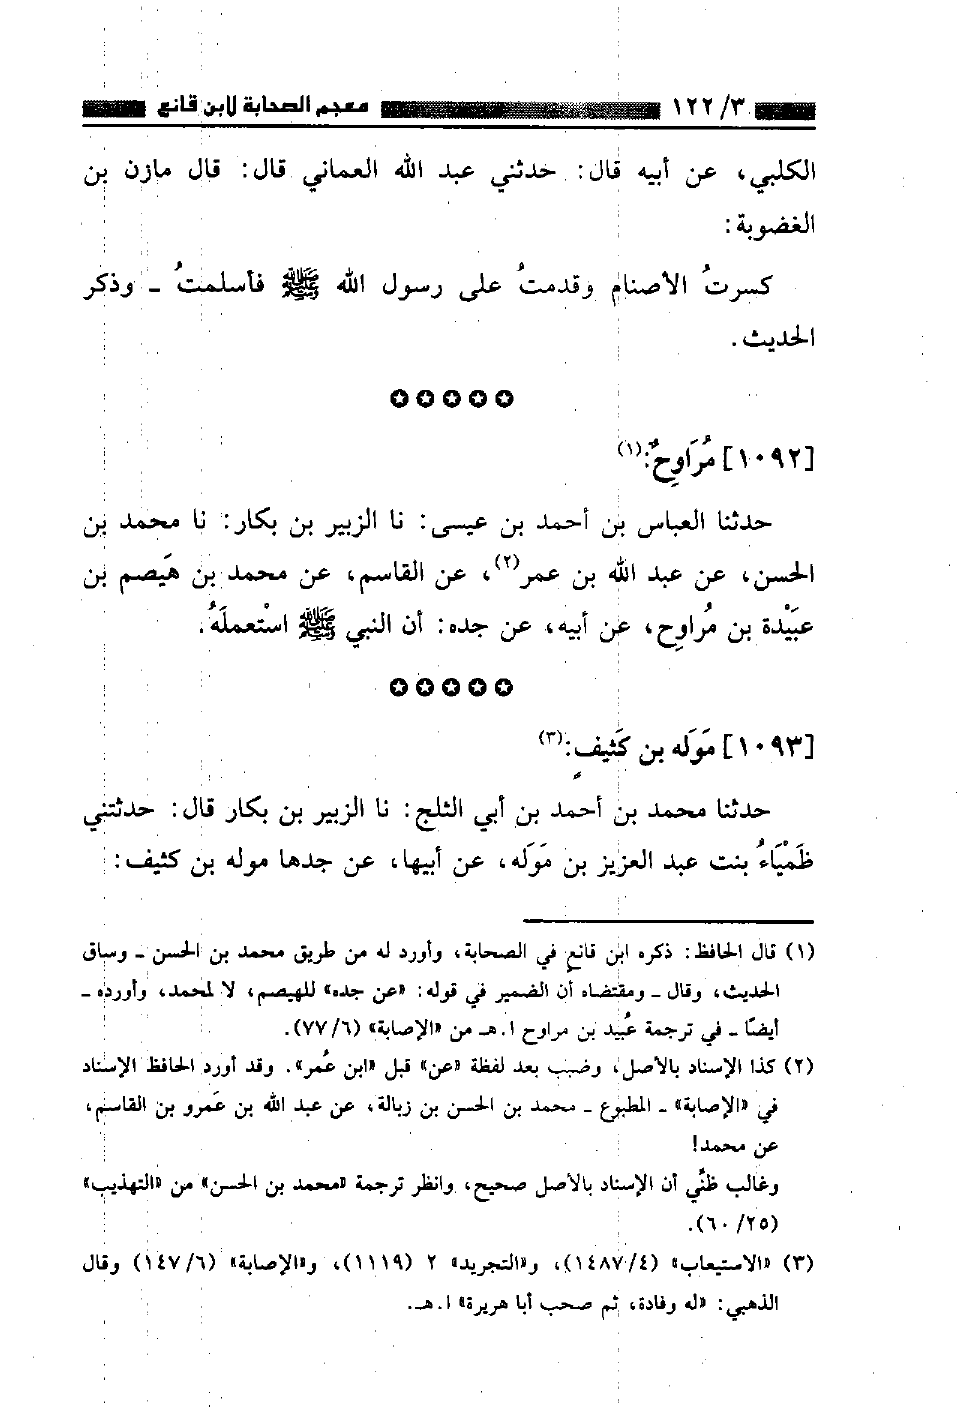 ٣/ ١٢٢ معجم الصحابة لابن قانع
الكلبي، عن أبيه قال: حدثني عبد الله العماني قال: قال مازن بن
الغضوبة:
كسرتُ الأصنام وقدمتُ على رسول الله ﷺ فأسلمتُ ـ وذكر
الحديث.
✪✪✪✪✪
[١٠٩٢] مُرَاوِحٌ:(١)
حدثنا العباس بن أحمد بن عيسى: نا الزبير بن بكار: نا محمد بن
الحسن، عن عبد الله بن عمر(٢)، عن القاسم، عن محمد بن هَيصم بن
عبَيْدة بن مُراوِح، عن أبيه، عن جده: أن النبي ﷺ اسْتعملَهُ.
✪✪✪✪✪
[١٠٩٣] مَوَله بن كَثيفٍ:(٣)
حدثنا محمد بن أحمد بن أبي الثلج: نا الزبير بن بكار قال: حدثتني
ظَمْيَاءُ بنت عبد العزيز بن مَوَله، عن أبيها، عن جدها موله بن كثيف:
(١) قال الحافظ: ذكره ابن قانع في الصحابة، وأورد له من طريق محمد بن الحسن ـ وساق
الحديث، وقال ـ ومقتضاه أن الضمير في قوله: «عن جده» للهيصم، لا لمحمد، وأورده ـ
أيضًا ـ في ترجمة عُبيد بن مراوح ا.هـ من «الإصابة» (٦/ ٧٧).
(٢) كذا الإسناد بالأصل، وضبب بعد لفظة «عن» قبل «ابن عُمر». وقد أورد الحافظ الإسناد
في «الإصابة» ـ المطبوع ـ محمد بن الحسن بن زبالة، عن عبد الله بن عَمرو بن القاسم،
عن محمد!
وغالب ظنِّي أن الإسناد بالأصل صحيح، وانظر ترجمة «محمد بن الحسن» من «التهذيب»
(٢٥/ ٦٠).
(٣) «الاستيعاب» (٤/ ١٤٨٧)، و«التجريد» ٢ (١١١٩)، و«الإصابة» (٦/ ١٤٧) وقال
الذهبي: «له وفادة، ثم صحب أبا هريرة» ا.هـ.